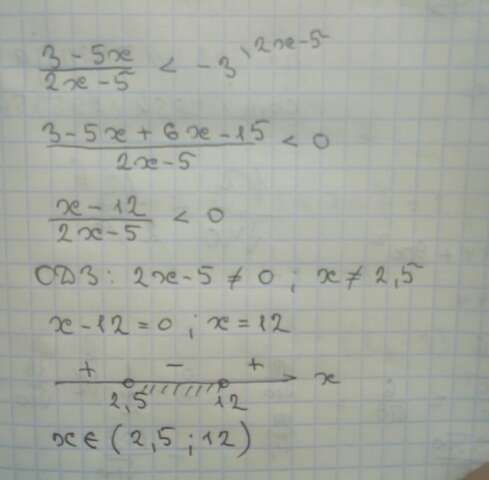 (3 - 5x)/(2x - 5) < -3 ^(\2x-5)
(3 - 5x + 6x - 15)/(2x - 5) < 0
(x - 12)/(2x - 5) < 0
ОДЗ: 2x - 5 ≠ 0 ; x ≠ 2,5
x - 12 = 0 ; x = 12
+ - + x
2,5 12
x ∈ (2,5 ; 12)